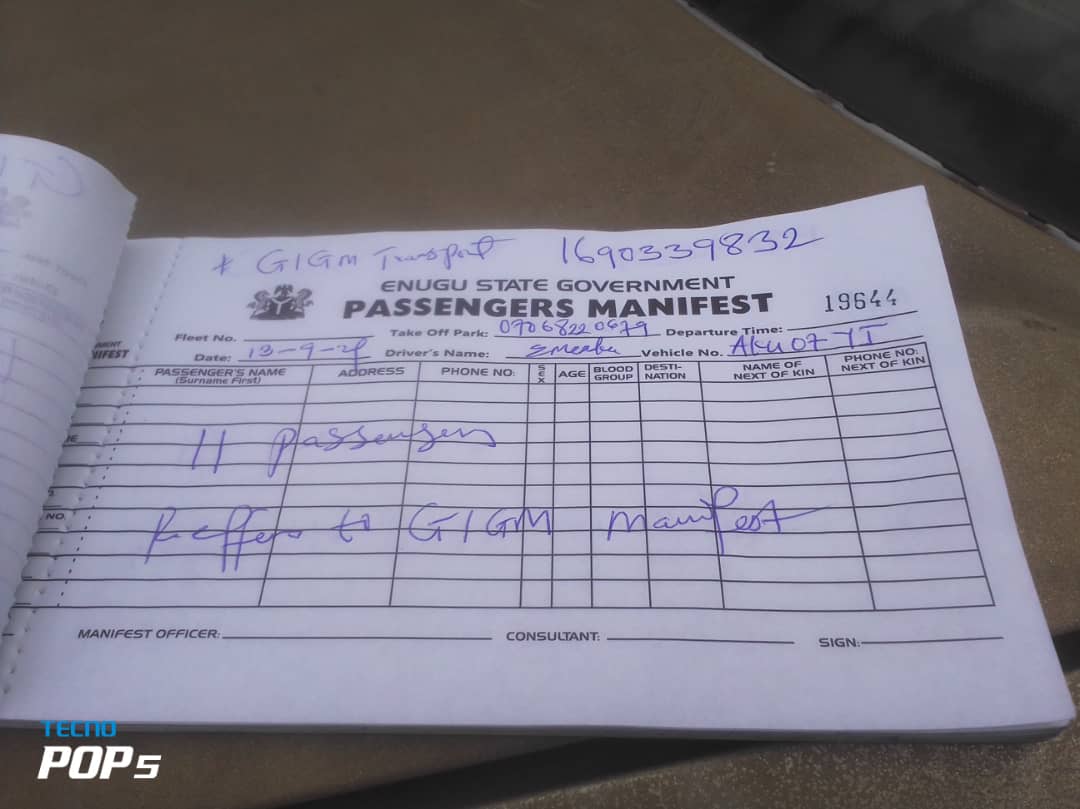 * GIGM Transport 1690339832
ENUGU STATE GOVERNMENT
PASSENGERS MANIFEST 19644
Fleet No. Take Off Park: 07068220679 Departure Time:
Date: 13-9-25 Driver's Name: Emeaba Vehicle No. AKU 07 YI
MENT
IFEST
PASSENGER'S NAME (Surname First) ADDRESS PHONE NO: SEX AGE BLOOD GROUP DESTI-NATION NAME OF NEXT OF KIN PHONE NO: NEXT OF KIN
11 passengers
NO.
Reffers to GIGM manifest
MANIFEST OFFICER: CONSULTANT: SIGN:
TECNO
POP 5